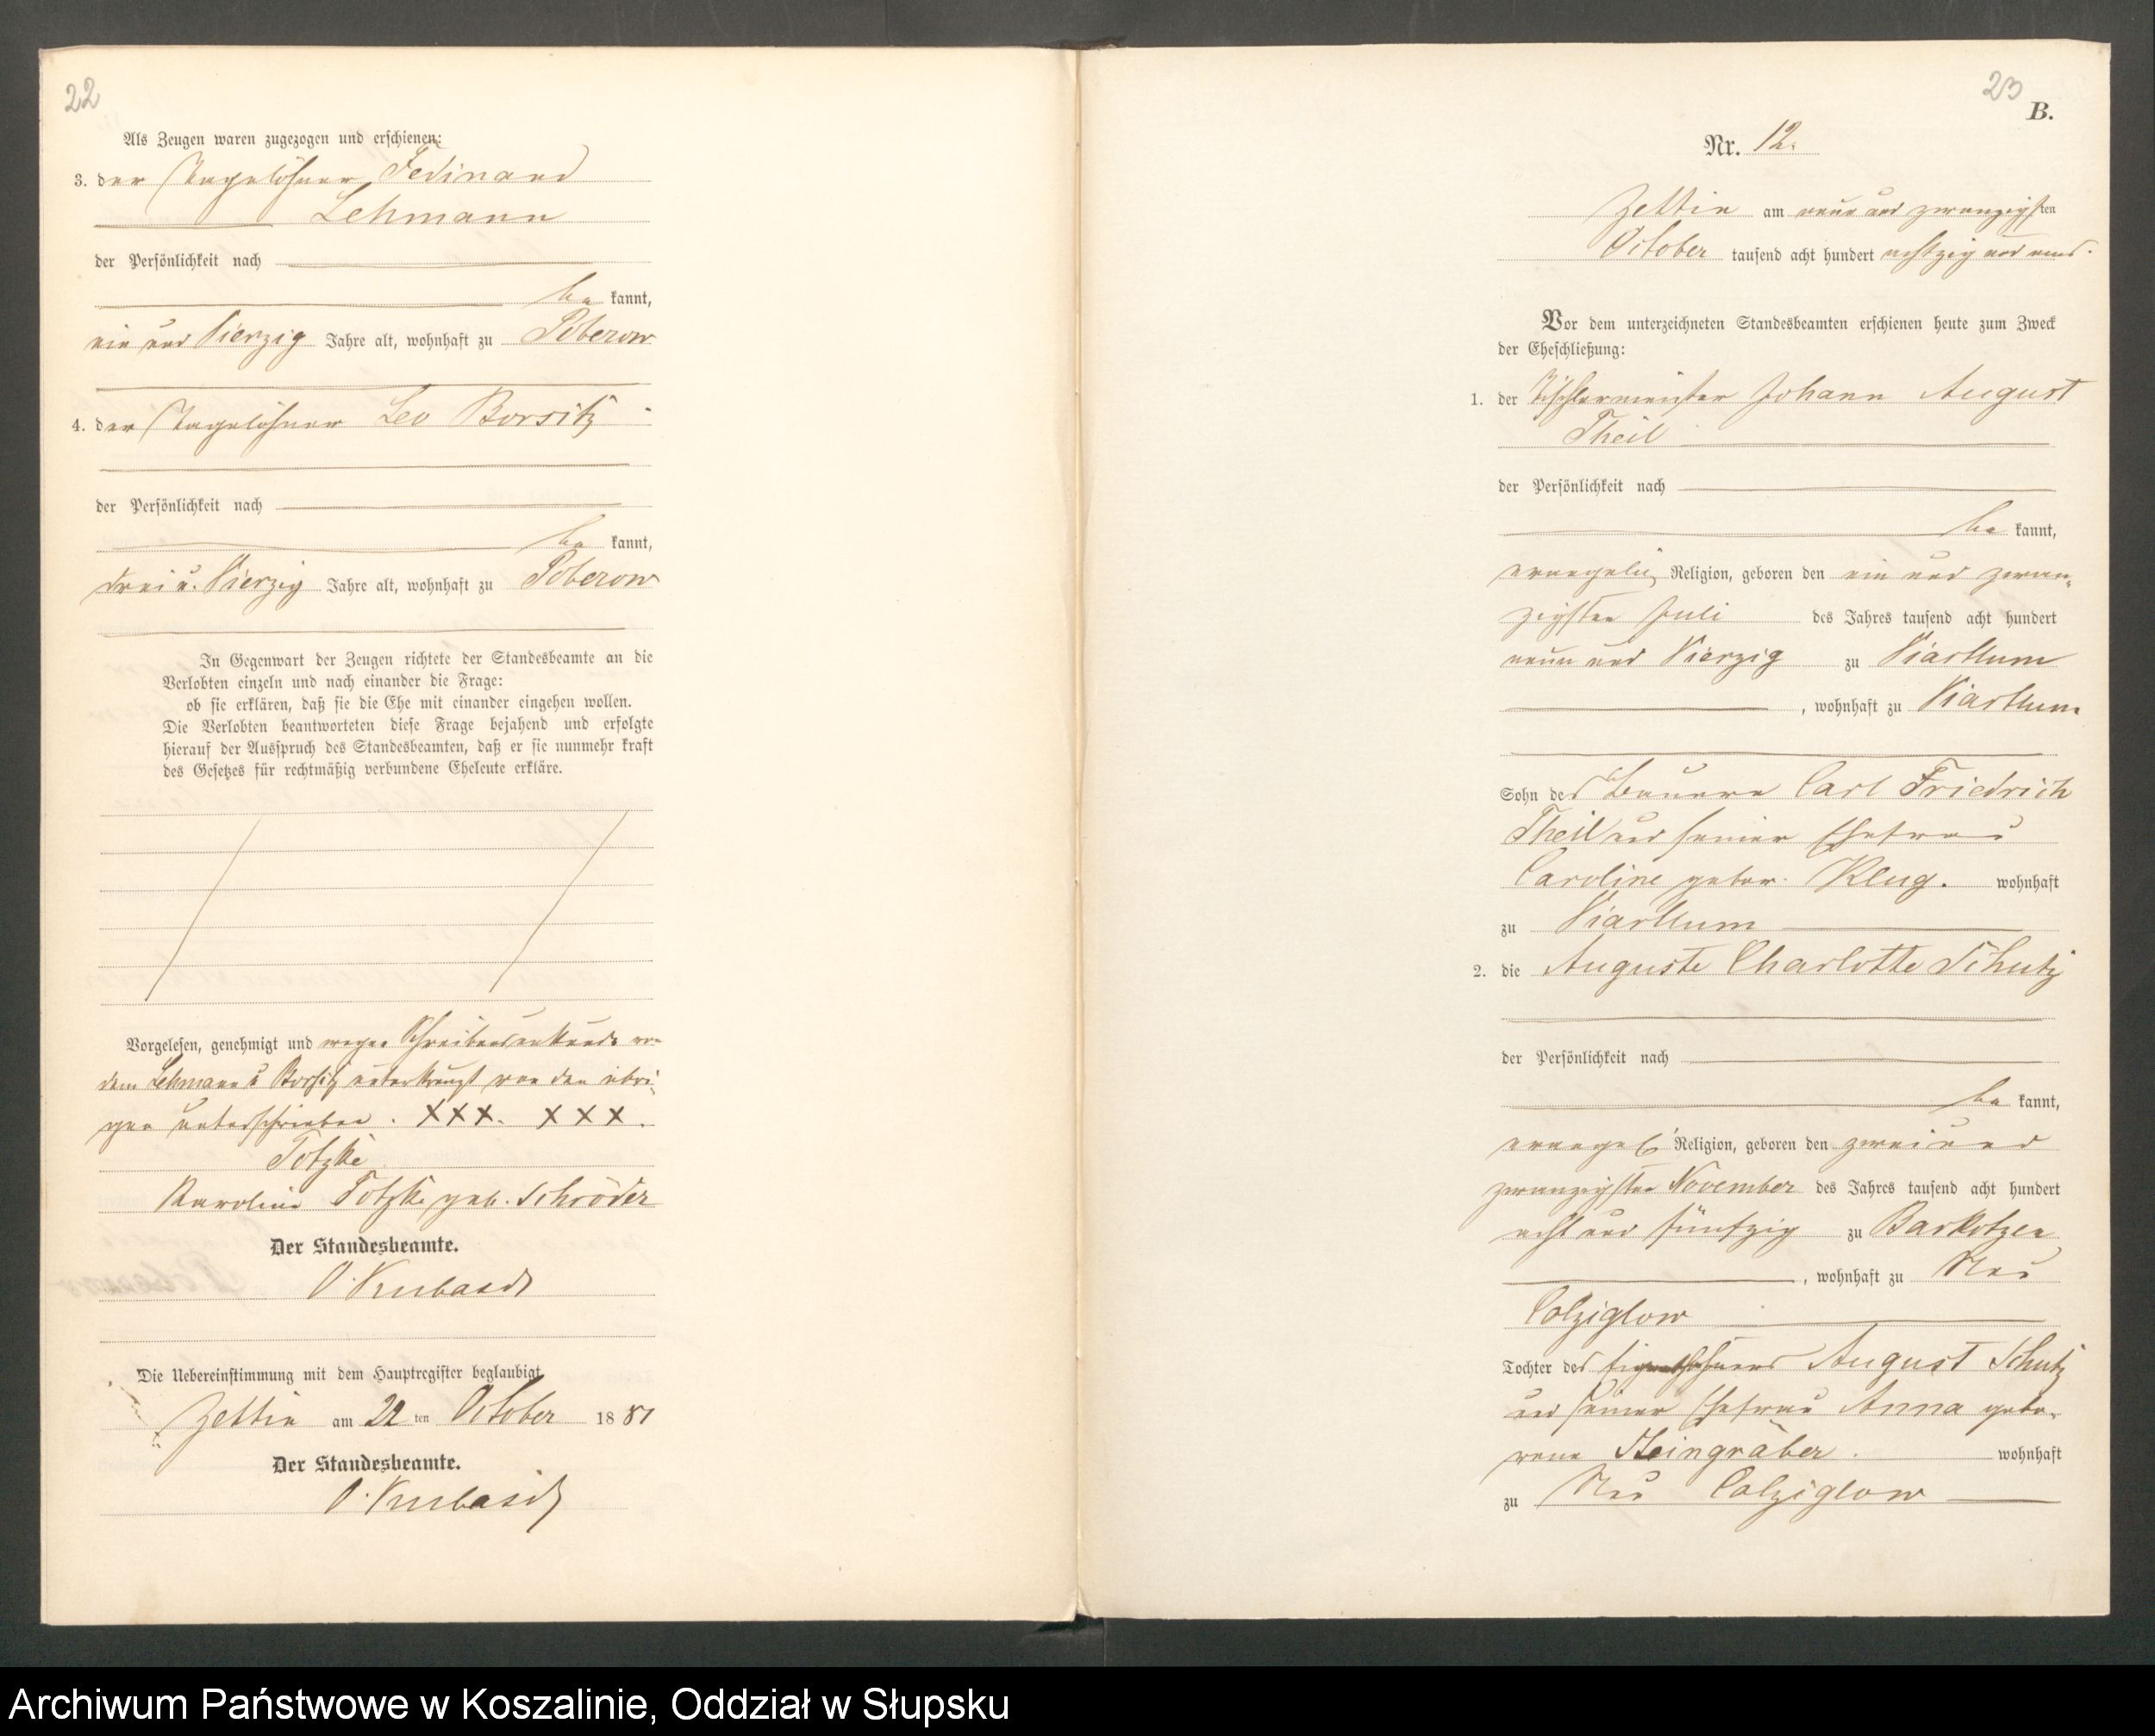 22
Als Zeugen waren zugezogen und erschienen:
3. der Tagelöhner Fedinand
Lehmann
der Persönlichkeit nach
be kannt,
ein und Vierzig Jahre alt, wohnhaft zu Poberow
4. der Tagelöhner Leo Borsitz
der Persönlichkeit nach
be kannt,
drei u. Vierzig Jahre alt, wohnhaft zu Poberow
In Gegenwart der Zeugen richtete der Standesbeamte an die
Verlobten einzeln und nach einander die Frage:
ob sie erklären, daß sie die Ehe mit einander eingehen wollen.
Die Verlobten beantworteten diese Frage bejahend und erfolgte
hierauf der Ausspruch des Standesbeamten, daß er sie nunmehr kraft
des Gesetzes für rechtmäßig verbundene Eheleute erkläre.
Vorgelesen, genehmigt und wegen Schreibensunkunde von
dem Lehmann u Borsitz unterkreuzt von den übri-
gen unterschrieben. XXX. XXX.
Totzke
Karoline Totzke geb. Schröder
Der Standesbeamte.
Die Uebereinstimmung mit dem Hauptregister beglaubigt
Zettin am 22 ten October 18 81
Der Standesbeamte.
23
B.
Nr. 12.
Zettin am neun und zwanzigsten
October tausend acht hundert achtzig und eins.
Vor dem unterzeichneten Standesbeamten erschienen heute zum Zweck
der Eheschließung:
1. der Tischlermeister Johann August
Theil
der Persönlichkeit nach
be kannt,
evangelis Religion, geboren den ein und zwan-
zigsten Juli des Jahres tausend acht hundert
neun und Vierzig zu Viartlum
, wohnhaft zu Viartlum
Sohn des Bauern Carl Friedrich
Theil und seiner Ehefrau
Caroline gebor. Klug. wohnhaft
zu Viartlum
2. die Auguste Charlotte Schutz
der Persönlichkeit nach
be kannt,
evangel. Religion, geboren den zwei und
zwanzigsten November des Jahres tausend acht hundert
acht und fünfzig zu Barkotzen
, wohnhaft zu Neu
Colziglow
Tochter des August Schutz
und seiner Ehefrau Anna gebo-
rene Steingräber. wohnhaft
zu Neu Colziglow
Archiwum Państwowe w Koszalinie, Oddział w Słupsku